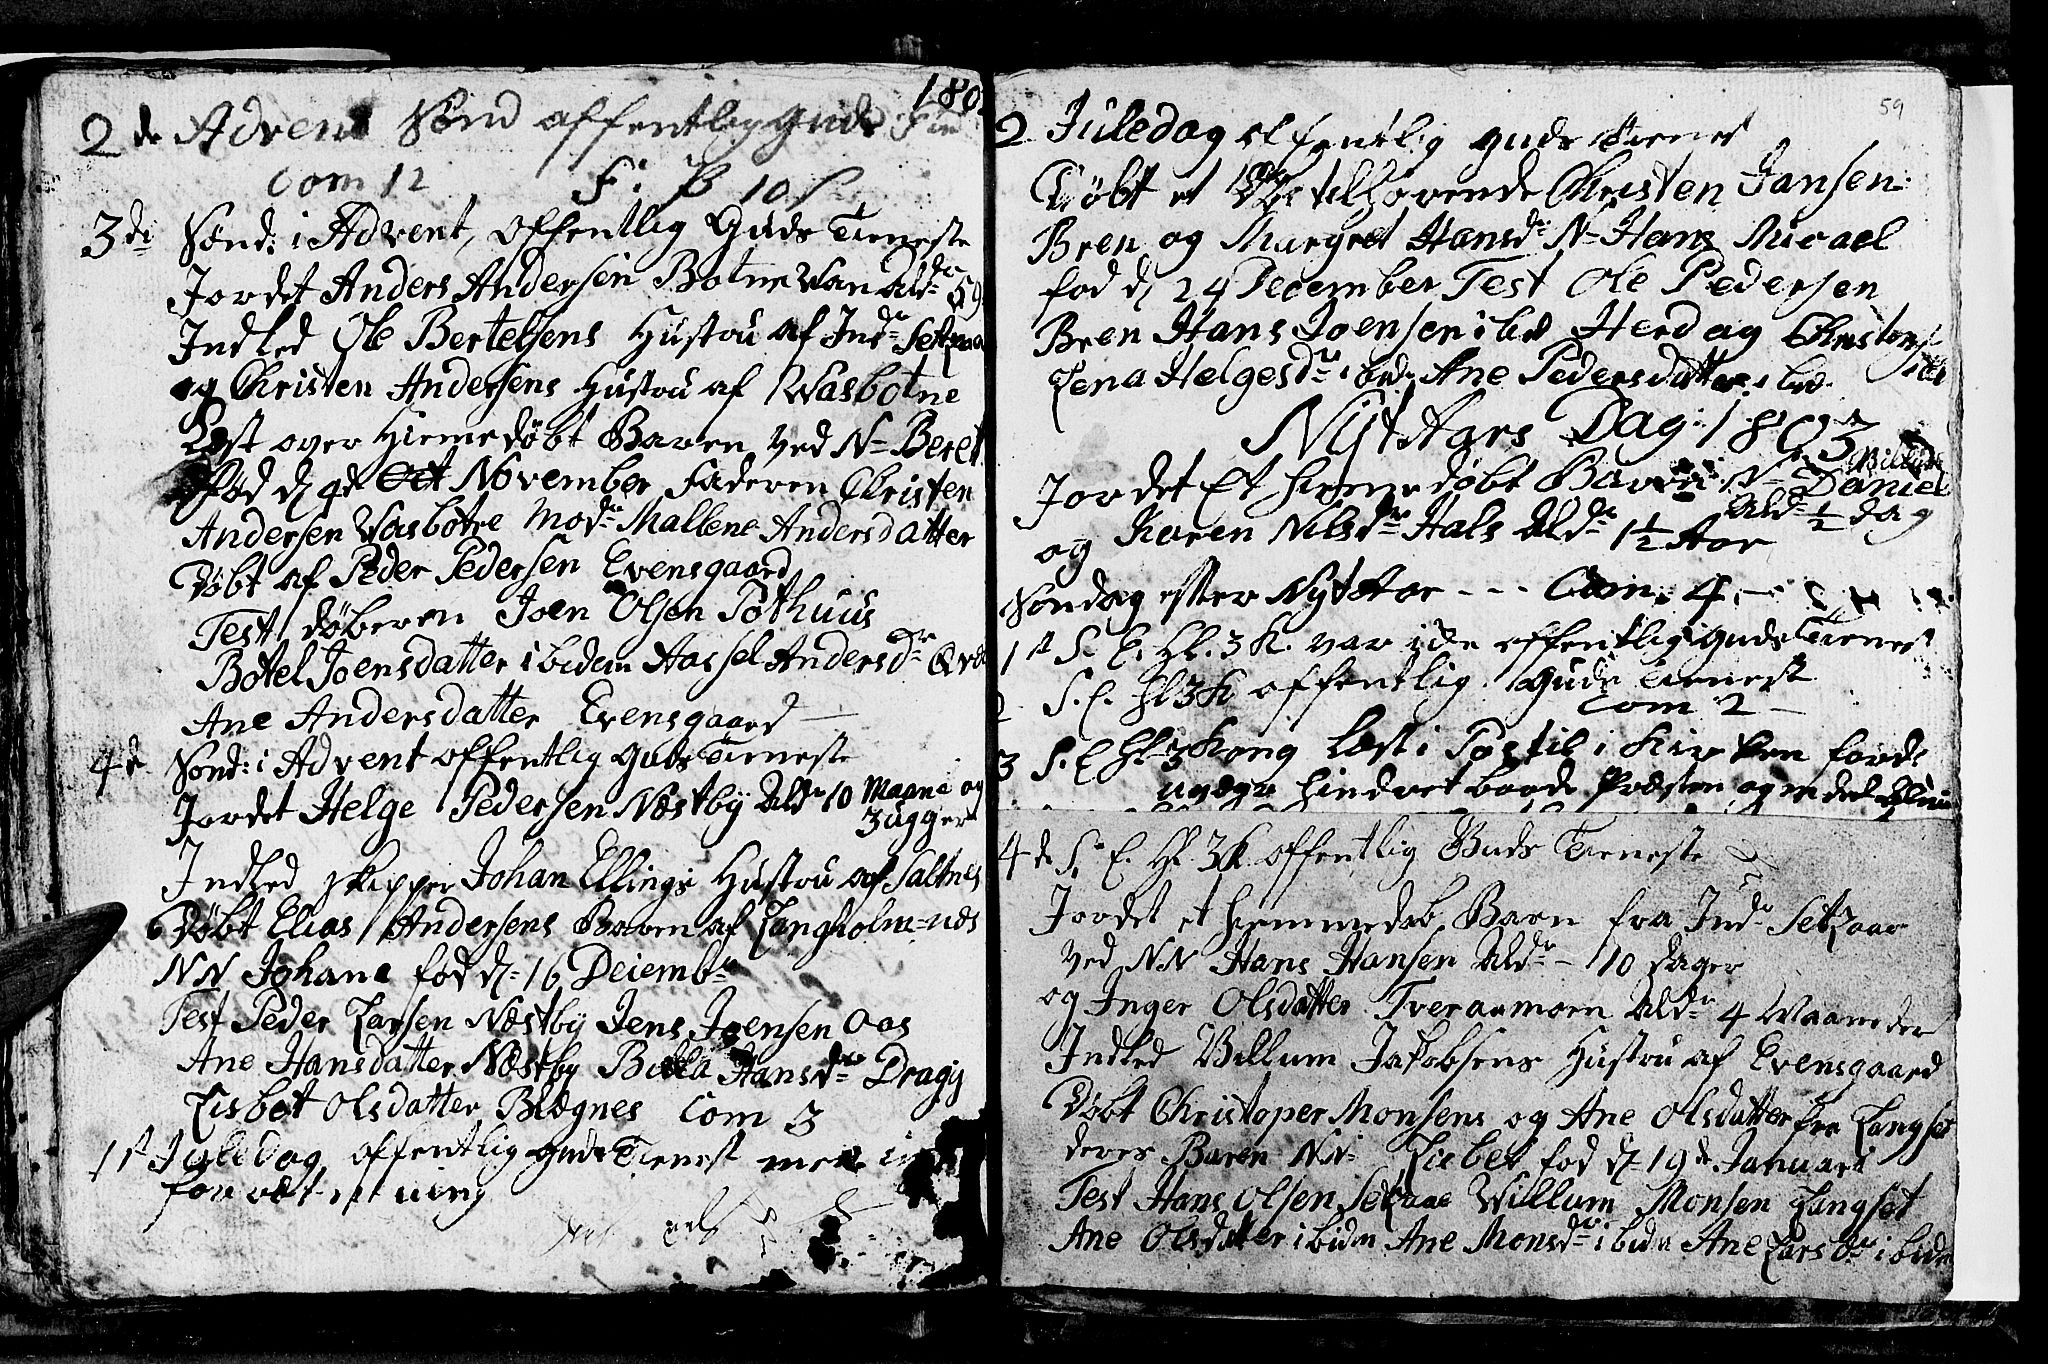 180
2 de Advent Sönd offentlig guds
Com 12 F: P 10 s
3di Sönd: i Advent, offentlig Guds Tieneste
Jordet Anders Andersen Botne Van Aldr 59
Indled Ole Bertelsens Hustru af Indr Setraa
og Christen Andersens Hustru af Wasbotne
Læst over Hiemedöbt Baren ved N- Beret
Föd d 9de November Faderen Christen
Andersen Wasbotne Modr Mallene Andersdatter
Döbt af Peder Pedersen Evensgaard
Test döberen Joen Olsen Pothuus
Botel Joensdatter ibidem Aassel Andersdr
Ane Andersdatter Evensgaard —
4de Sönd: i Advent offentlig guds Tieneste
Jordet Helge Pedersen Næstby Aldr 10 Maane og
3 ugger
Indled skipper Johan Ellings Hustru af Saltnes
Döbt Elias Andersens Baren af Langholm-næs
NN Johana fod d- 16 Deiembr
Test Peder Larsen Næstby Jens Joensen Oas
Ane Hansdatter Næstby Hansdr Dragy
Lisbet Olsdatter Blægnes Com 3
1st Juledag offentlig guds Tienest
59
2 Juledag offentlig guds Tienest
Döbt et tilhörende Christen Jansen
Bren og Margret Hansdr N- Hans Micael
fod d 24 December Test Ole Pedersen
Bren Hans Joensen ibid Herdag
Lena Helgesdr ibid. Ane Pedersdatter ibid.
Nÿt Aars Dag: 1803
Jordet Et hiemedöbt Baren N- Daniel
Aldr ½ dag
og Karen Nilsdr Hals Aldr 1½ Aar
Söndag efter Nyt Aar - - - Com. 4 -
1st S. E. Hl. 3 K. var ide offentlig guds Tienest
2 S. E. Hl 3 K offentlig guds Tienest
Com 2 -
3 S. E Hl 3 Kong Læst i Postil i Kirken fordi
uvæyr hindret baade Præsten og en deel
4de S. E. Hl. 3 K. offentlig Guds Tieneste
Jordet et hiemmedöb Barn fra Indr Setraae
ved NN Hans Hansen Aldr - 10 dager
og Inger Olsdatter Tveraamoen Aldr 4 Maaneder
Indled Villum Jakobsens Hustru af Evensgaard
Döbt Christoper Monsens og Ane Olsdatter fra Langset
deres Baren NN- Lisbet fod d- 19de Januari
Test Hans Olsen Setraae Willum Monsen Langset
Ane Olsdatter ibidm Ane Monsdr ibidm Ane Larsdr ibidm